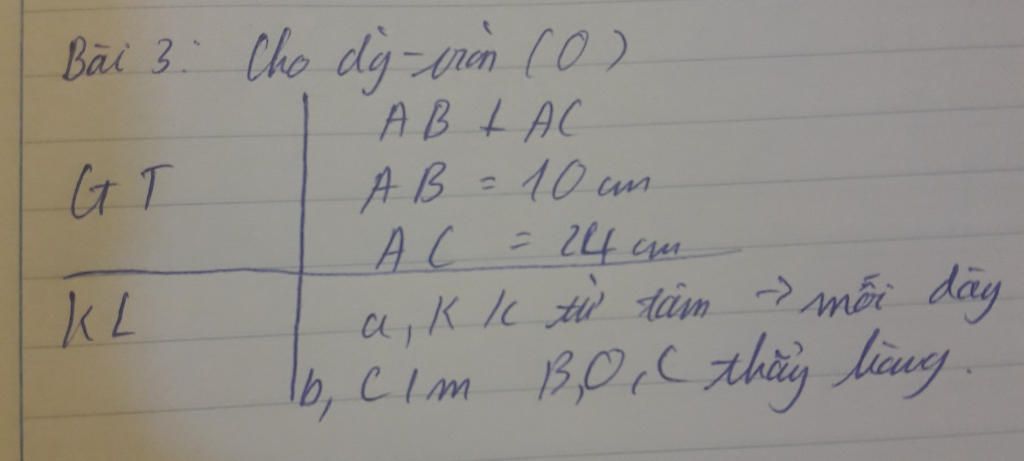 Bài 3: Cho đg-tròn (O)
AB ⊥ AC
GT AB = 10 cm
AC = 24 cm
KL a, K/c từ tâm → mỗi dây
b, C/m B,O,C thẳng hàng.